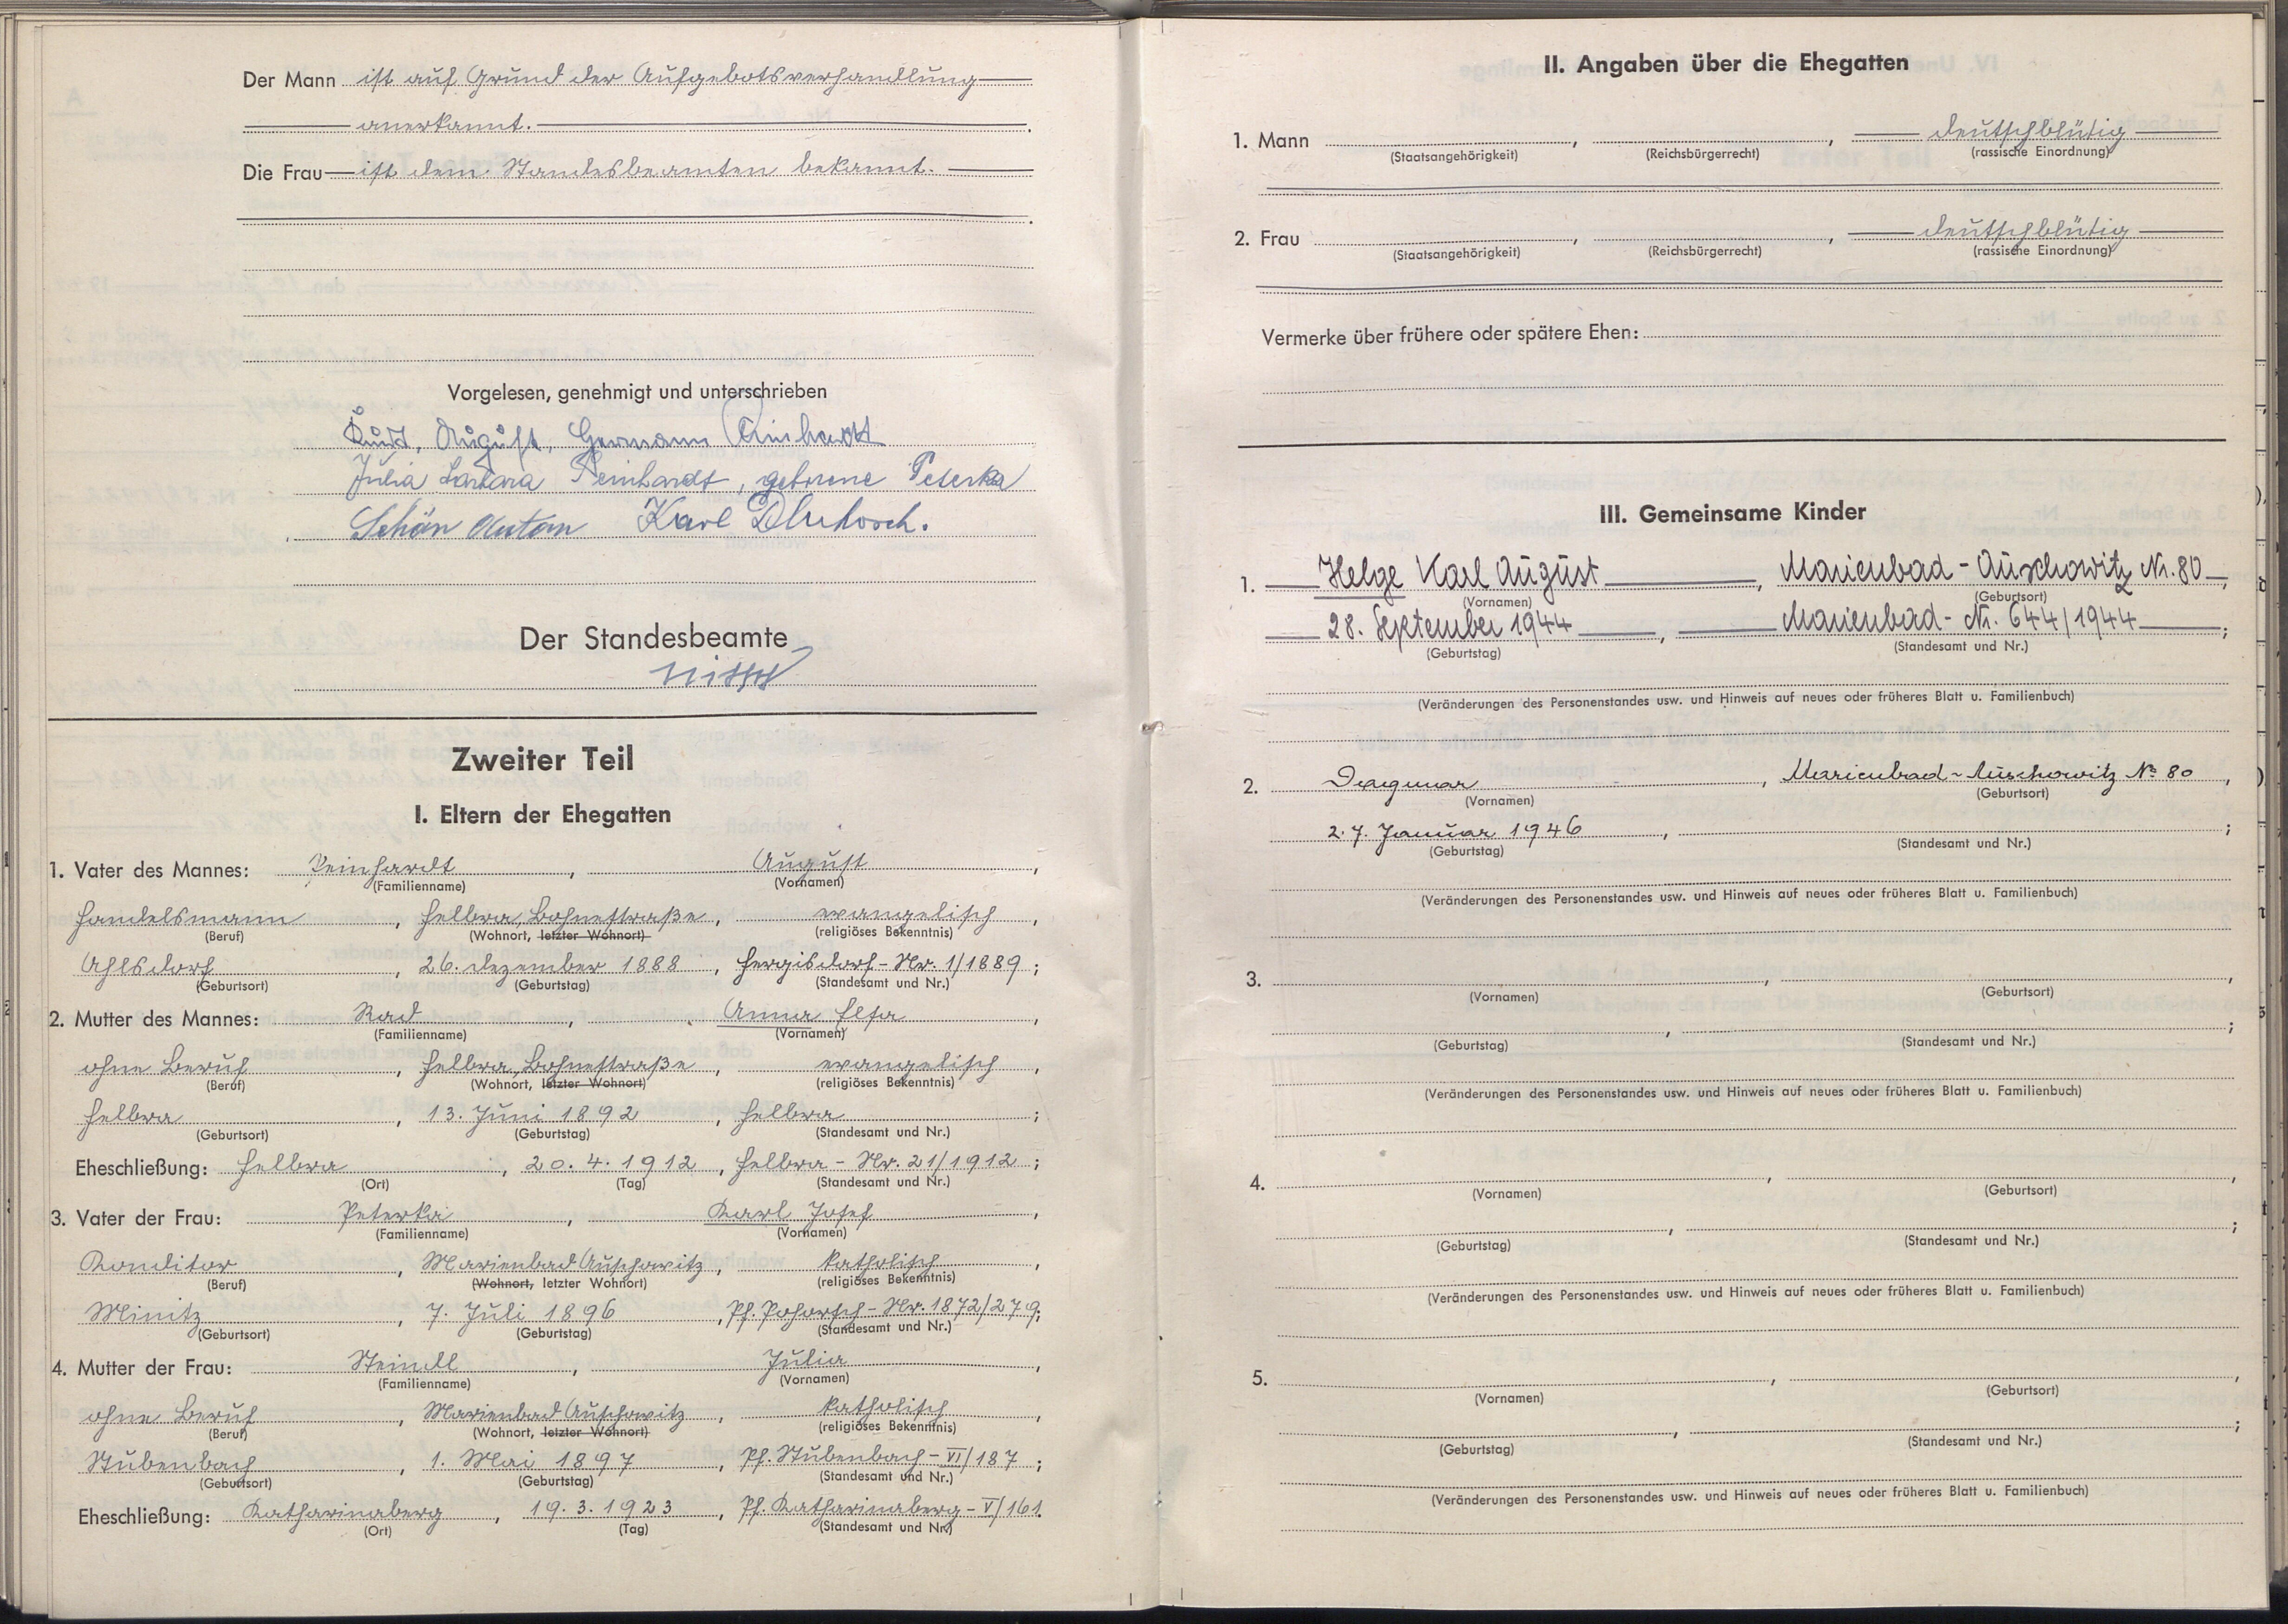 Der Mann ist auf Grund der Aufgebotsverhandlung
anerkannt.
Die Frau ist dem Standesbeamten bekannt.
Vorgelesen, genehmigt und unterschrieben
Kurt, August, Hermann Reinhardt
Julia Barbara Reinhardt, geborene Peterka
Schön Anton Karl Dluhosch.
Der Standesbeamte
Zweiter Teil
I. Eltern der Ehegatten
1. Vater des Mannes: Reinhardt, August,
(Familienname) (Vornamen)
Handelsmann, Helbra, Bohnestraße, evangelisch,
(Beruf) (Wohnort, letzter Wohnort) (religiöses Bekenntnis)
Ahlsdorf, 26. Dezember 1888, Hergisdorf - Nr. 1/1889;
(Geburtsort) (Geburtstag) (Standesamt und Nr.)
2. Mutter des Mannes: Rad, Anna Elsa,
(Familienname) (Vornamen)
ohne Beruf, Helbra, Bohnestraße, evangelisch,
(Beruf) (Wohnort, letzter Wohnort) (religiöses Bekenntnis)
Helbra, 13. Juni 1892, Helbra;
(Geburtsort) (Geburtstag) (Standesamt und Nr.)
Eheschließung: Helbra, 20. 4. 1912, Helbra - Nr. 21/1912;
(Ort) (Tag) (Standesamt und Nr.)
3. Vater der Frau: Peterka, Karl Josef,
(Familienname) (Vornamen)
Konditor, Marienbad Auschowitz, katholisch,
(Beruf) (Wohnort, letzter Wohnort) (religiöses Bekenntnis)
Minitz, 7. Juli 1896, Pf. Pohorsch - Nr. 1872/279;
(Geburtsort) (Geburtstag) (Standesamt und Nr.)
4. Mutter der Frau: Steindl, Julia,
(Familienname) (Vornamen)
ohne Beruf, Marienbad Auschowitz, katholisch,
(Beruf) (Wohnort, letzter Wohnort) (religiöses Bekenntnis)
Stubenbach, 1. Mai 1897, Pf. Stubenbach - VI/187;
(Geburtsort) (Geburtstag) (Standesamt und Nr.)
Eheschließung: Katharinaberg, 19. 3. 1923, Pf. Katharinaberg - V/161.
(Ort) (Tag) (Standesamt und Nr.)
II. Angaben über die Ehegatten
1. Mann , , deutschblütig
(Staatsangehörigkeit) (Reichsbürgerrecht) (rassische Einordnung)
2. Frau , , deutschblütig
(Staatsangehörigkeit) (Reichsbürgerrecht) (rassische Einordnung)
Vermerke über frühere oder spätere Ehen:
III. Gemeinsame Kinder
1. Helge Karl August, Marienbad - Auschowitz Nr. 80,
(Vornamen) (Geburtsort)
28. September 1944, Marienbad - Nr. 644/1944;
(Geburtstag) (Standesamt und Nr.)
(Veränderungen des Personenstandes usw. und Hinweis auf neues oder früheres Blatt u. Familienbuch)
2. Dagmar, Marienbad - Auschowitz No 80,
(Vornamen) (Geburtsort)
27. Januar 1946, ;
(Geburtstag) (Standesamt und Nr.)
(Veränderungen des Personenstandes usw. und Hinweis auf neues oder früheres Blatt u. Familienbuch)
3. , ,
(Vornamen) (Geburtsort)
, ;
(Geburtstag) (Standesamt und Nr.)
(Veränderungen des Personenstandes usw. und Hinweis auf neues oder früheres Blatt u. Familienbuch)
4. , ,
(Vornamen) (Geburtsort)
, ;
(Geburtstag) (Standesamt und Nr.)
(Veränderungen des Personenstandes usw. und Hinweis auf neues oder früheres Blatt u. Familienbuch)
5. , ,
(Vornamen) (Geburtsort)
, ;
(Geburtstag) (Standesamt und Nr.)
(Veränderungen des Personenstandes usw. und Hinweis auf neues oder früheres Blatt u. Familienbuch)